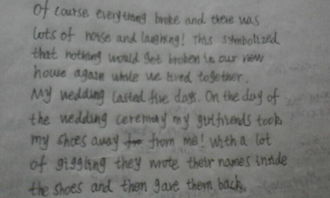 Of course everything broke and there was
lots of noise and laughing! This symbolized
that nothing would get broken in our new
house again while we lived together.
My wedding lasted five days. On the day of
the wedding ceremony my girlfriends took
my shoes away from me! With a lot
of giggling they wrote their names inside
the shoes and then gave them back.